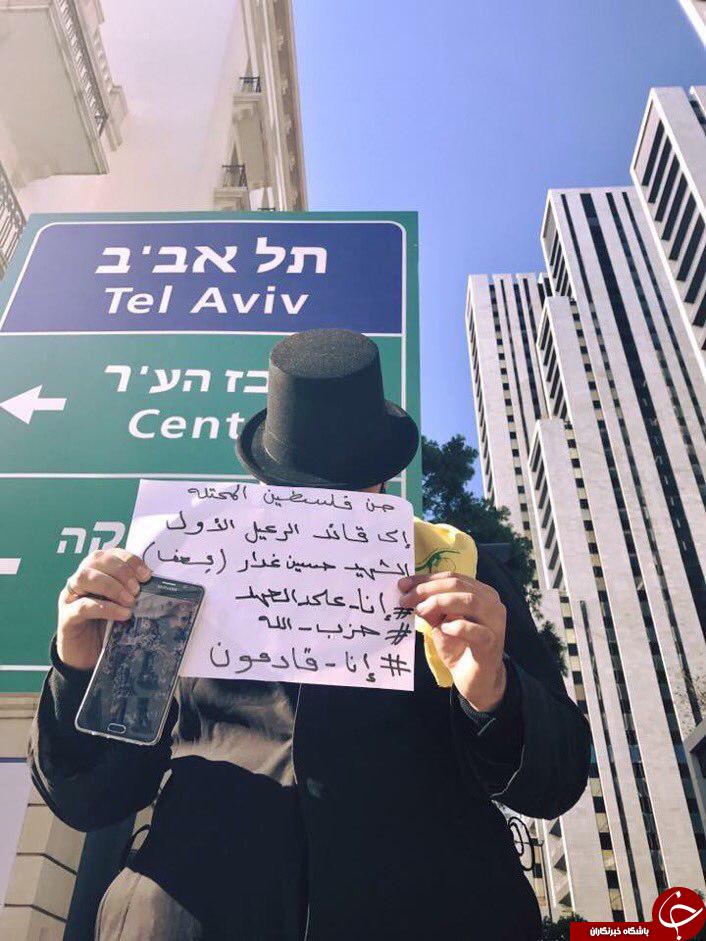 תל אביב
Tel Aviv
כז העיר
Cent
קה
من فلسطين المحتله
إلى قائد الرعيل الأول
الشهيد حسين غدار
#إنا_على_العهد
#حزب_الله
#إنا_قادمون
SAMSUNG
باشگاه خبرنگاران